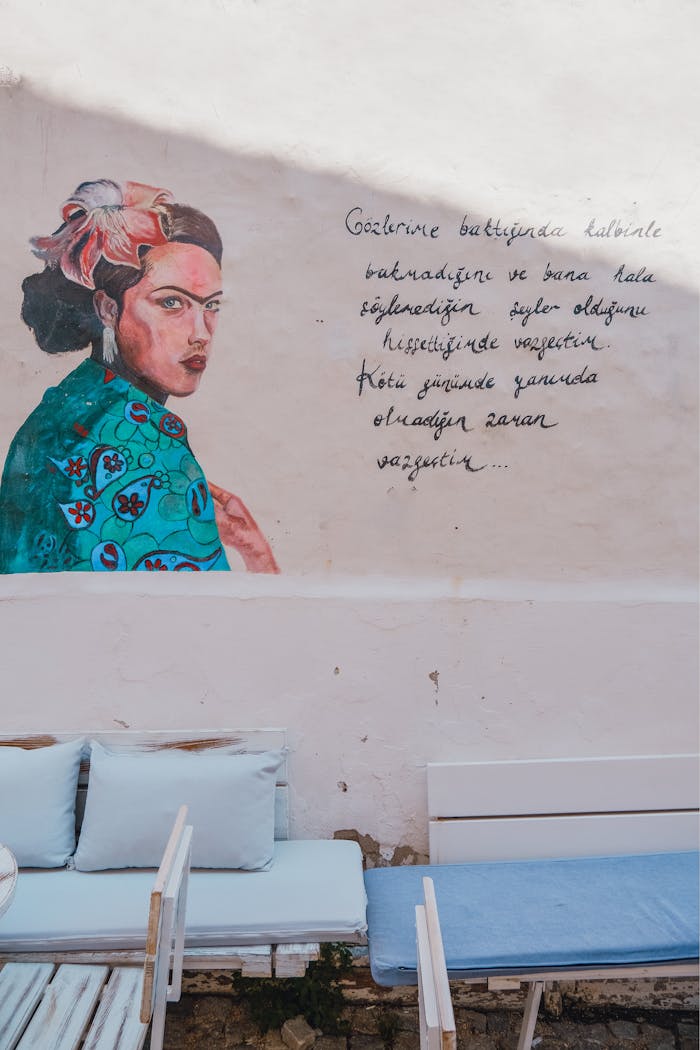 Gözlerime baktığında kalbinle
bakmadığını ve bana hala
söylemediğin şeyler olduğunu
hissettiğimde vazgeçtim.
Kötü günümde yanımda
olmadığın zaman
vazgeçtim...